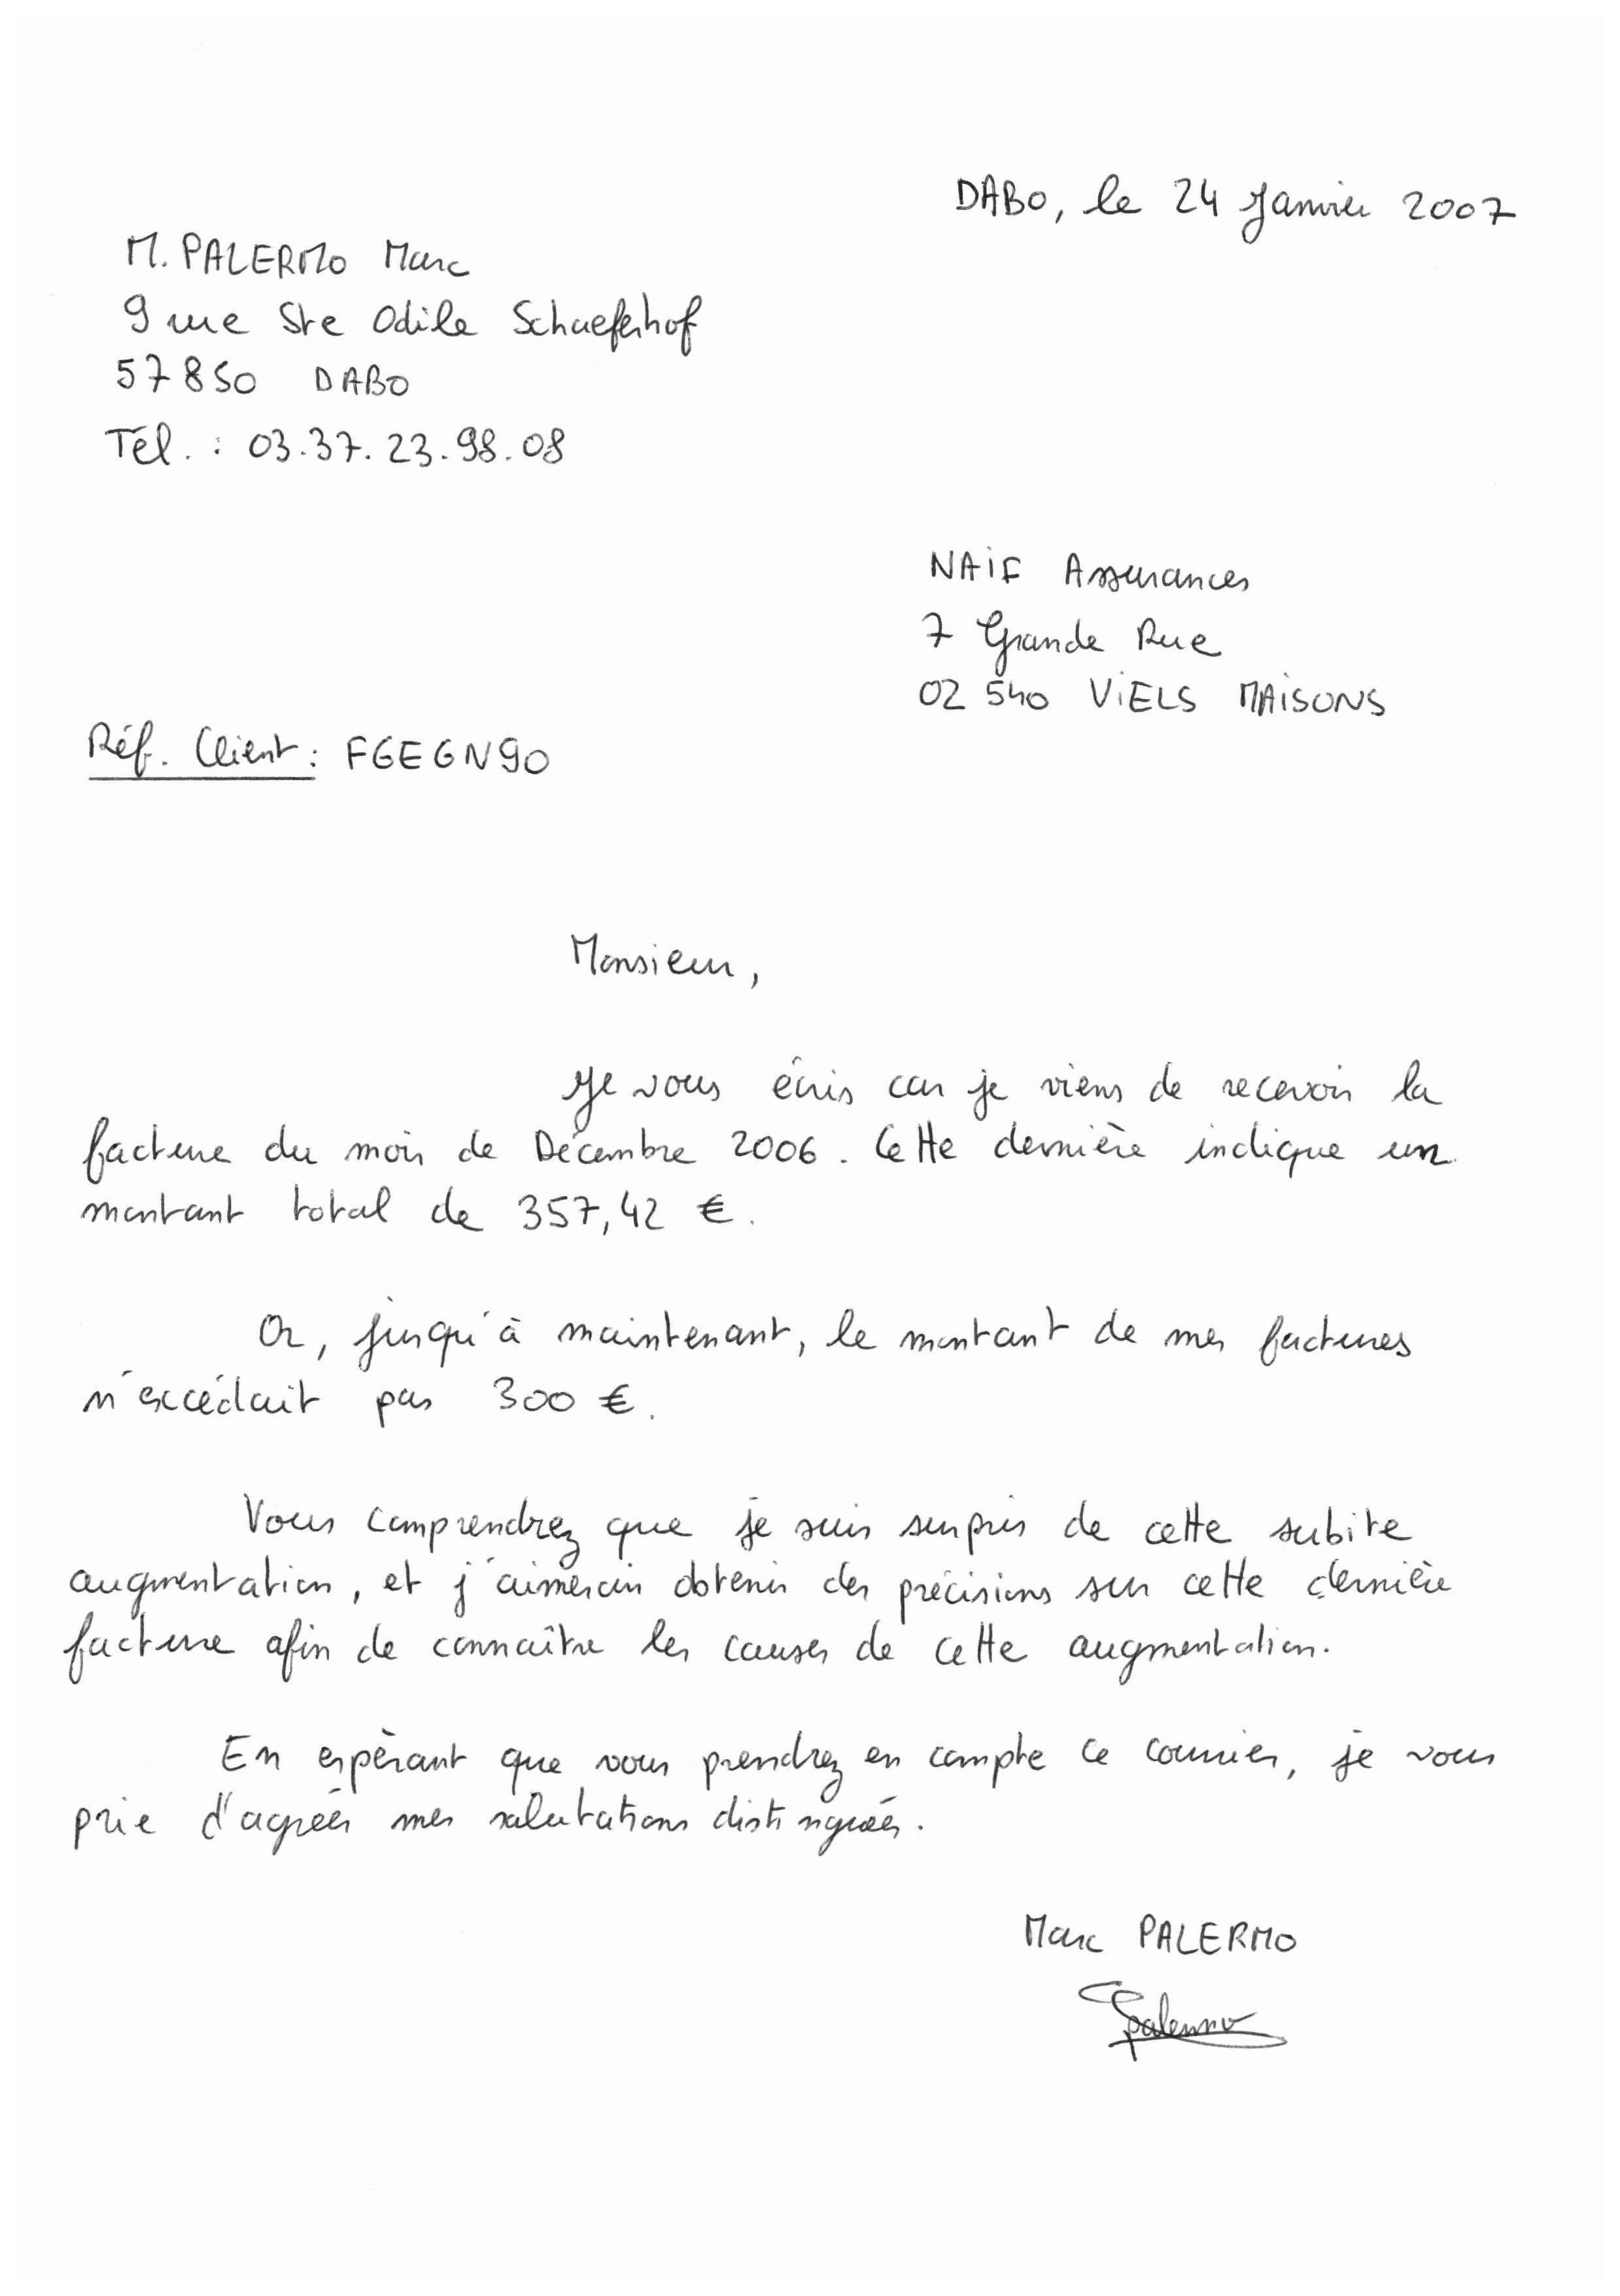 DABO, le 24 Janvier 2007
M. PALERMO Marc
9 rue Ste Odile Schaeferhof
57850 DABO
Tél. : 03.37.23.98.08
NAIF Assurances
7 Grande Rue
02 540 VIELS MAISONS
Réf. Client : FGEGN90
Monsieur,
Je vous écris car je viens de recevoir la
facture du mois de Décembre 2006. Cette dernière indique un
montant total de 357,42 €.
Or, jusqu'à maintenant, le montant de mes factures
n'excédait pas 300 €.
Vous comprendrez que je suis surpris de cette subite
augmentation, et j'aimerais obtenir des précisions sur cette dernière
facture afin de connaître les causes de cette augmentation.
En espèrant que vous prendrez en compte ce courrier, je vous
prie d'agréer mes salutations distinguées.
Marc PALERMO
Palermo